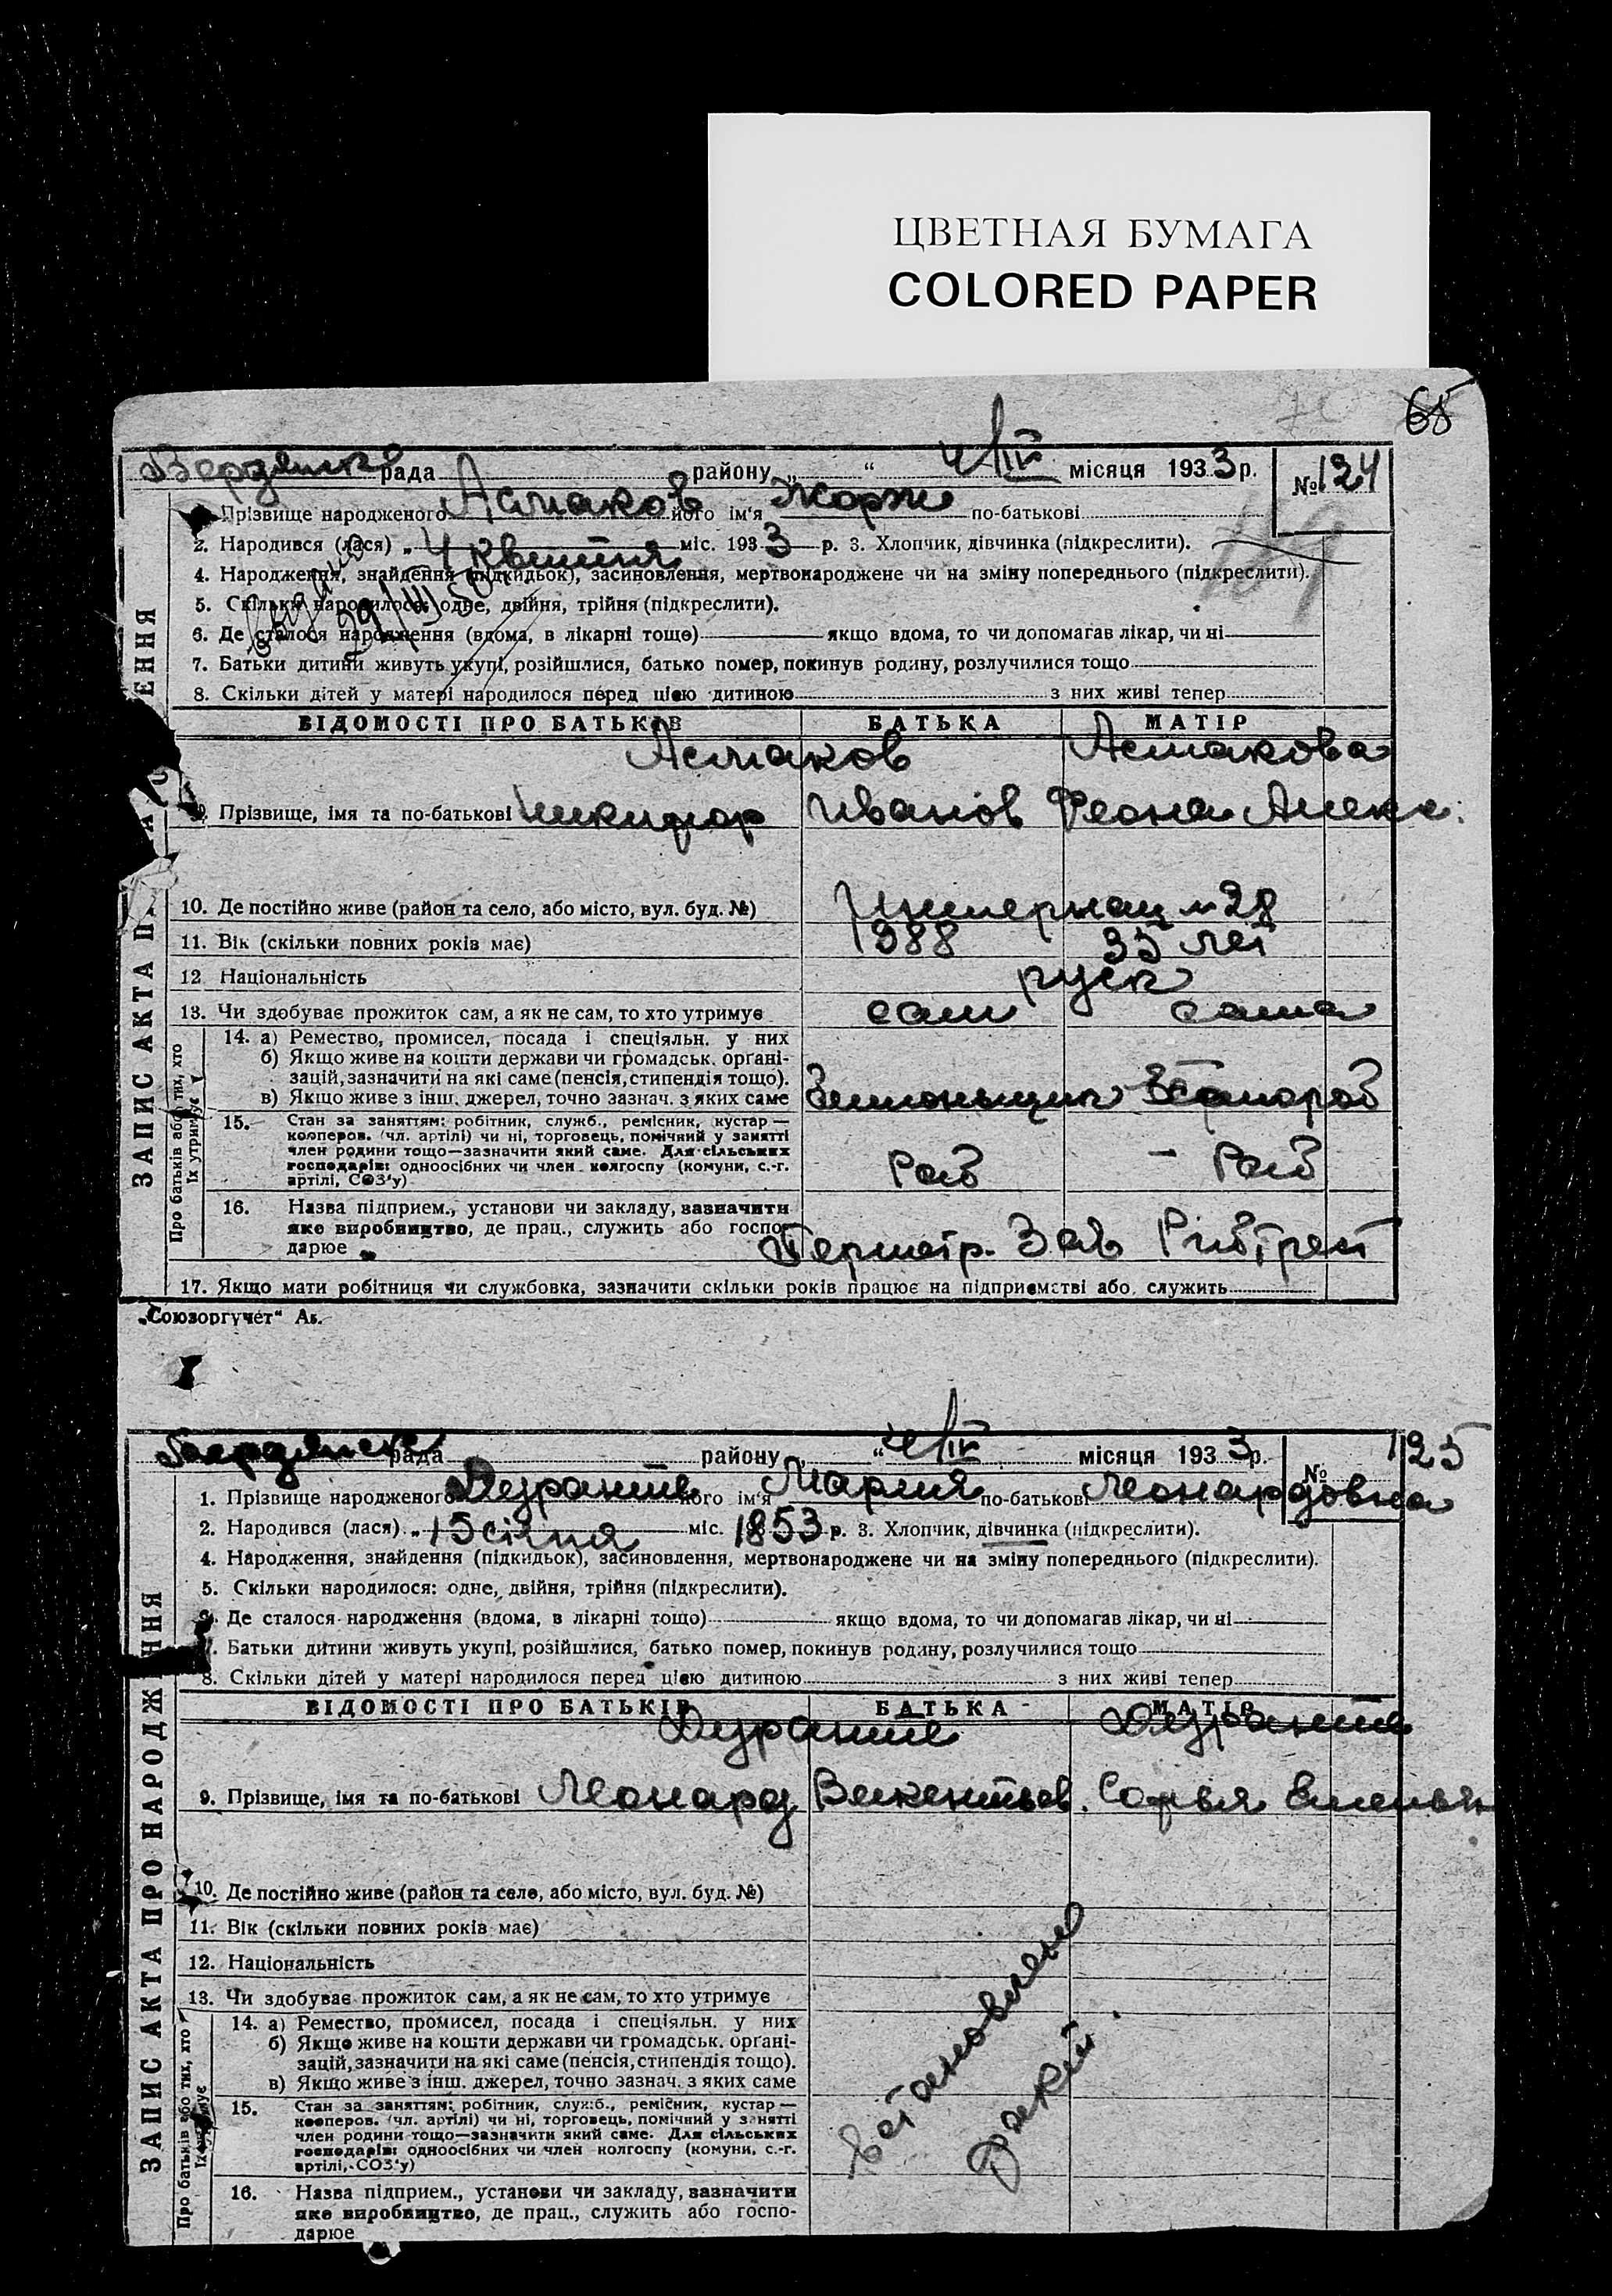 ЦВЕТНАЯ БУМАГА
COLORED PAPER
65
Бердянск рада району „ “ 4/IV місяця 1933 р. № 124
Прізвище народженого Астаков його ім‘я Жорж по-батькові
2. Народився (лася) „ 4 квітня міс. 1933 р. 3. Хлопчик, дівчинка (підкреслити).
4. Народження, знайдення (підкидьок), засиновлення, мертвонароджене чи на зміну попереднього (підкреслити).
5. Скільки народилося: одне, двійня, трійня (підкреслити).
6. Де сталося народження (вдома, в лікарні тощо) якщо вдома, то чи допомагав лікар, чи ні
7. Батьки дитини живуть укупі, розійшлися, батько помер, покинув родину, розлучилися тощо
8. Скільки дітей у матері народилося перед цією дитиною з них живі тепер
ВІДОМОСТІ ПРО БАТЬКІВ БАТЬКА МАТІР
Астаков Астакова
9. Прізвище, імя та по-батькові Никифор Иванов Феона Алекс.
10. Де постійно живе (район та село, або місто, вул. буд. №) Интернац 28
11. Вік (скільки повних років має) 1888 35 лет
12 Національність руск
13. Чи здобуває прожиток сам, а як не сам, то хто утримує сам сама
14. а) Ремество, промисел, посада і спеціяльн. у них
б) Якщо живе на кошти держави чи громадськ. орґані-
зацій, зазначити на які саме (пенсія, стипендія тощо).
в) Якщо живе з інш. джерел, точно зазнач. з яких саме
15. Стан за заняттям: робітник, служб., ремісник, кустар —
кооперов. (чл. артілі) чи ні, торговець, помічний у занятті
член родини тощо—зазначити який саме. Для сільських
господарів: одноосібних чи член колгоспу (комуни, с.-г.
артілі, СОЗ‘у) Раб — Раб
16. Назва підприєм., установи чи закладу, зазначити
яке виробництво, де прац., служить або госпо-
дарює Зав Рибтрест
17. Якщо мати робітниця чи службовка, зазначити скільки років працює на підприємстві або служить
„Союзоргучёт“
ЗАПИС АКТА
Про батьків або тих, хто
їх утримує
Бердянск рада району „ “ 4/IV місяця 1933 р. № 125
1. Прізвище народженого його ім‘я Мария по-батькові Леонардовна
2. Народився (лася) „ 15 січня міс. 1853 р. 3. Хлопчик, дівчинка (підкреслити).
4. Народження, знайдення (підкидьок), засиновлення, мертвонароджене чи на зміну попереднього (підкреслити).
5. Скільки народилося: одне, двійня, трійня (підкреслити).
6. Де сталося народження (вдома, в лікарні тощо) якщо вдома, то чи допомагав лікар, чи ні
7. Батьки дитини живуть укупі, розійшлися, батько помер, покинув родину, розлучилися тощо
8. Скільки дітей у матері народилося перед цією дитиною з них живі тепер
ВІДОМОСТІ ПРО БАТЬКІВ БАТЬКА МАТІР
9. Прізвище, імя та по-батькові Леонард Викентьев. Софья Емельян
10. Де постійно живе (район та село, або місто, вул. буд. №)
11. Вік (скільки повних років має)
12. Національність
13. Чи здобуває прожиток сам, а як не сам, то хто утримує
14. а) Ремество, промисел, посада і спеціяльн. у них
б) Якщо живе на кошти держави чи громадськ. орґані-
зацій, зазначити на які саме (пенсія, стипендія тощо).
в) Якщо живе з інш. джерел, точно зазнач. з яких саме
15. Стан за заняттям: робітник, служб., ремісник, кустар —
кооперов. (чл. артілі) чи ні, торговець, помічний у занятті
член родини тощо—зазначити який саме. Для сільських
господарів: одноосібних чи член колгоспу (комуни, с.-г.
артілі, СОЗ‘у)
16. Назва підприєм., установи чи закладу, зазначити
яке виробництво, де прац., служить або госпо-
дарює
ЗАПИС АКТА ПРО НАРОДЖЕННЯ
Про батьків або тих, хто